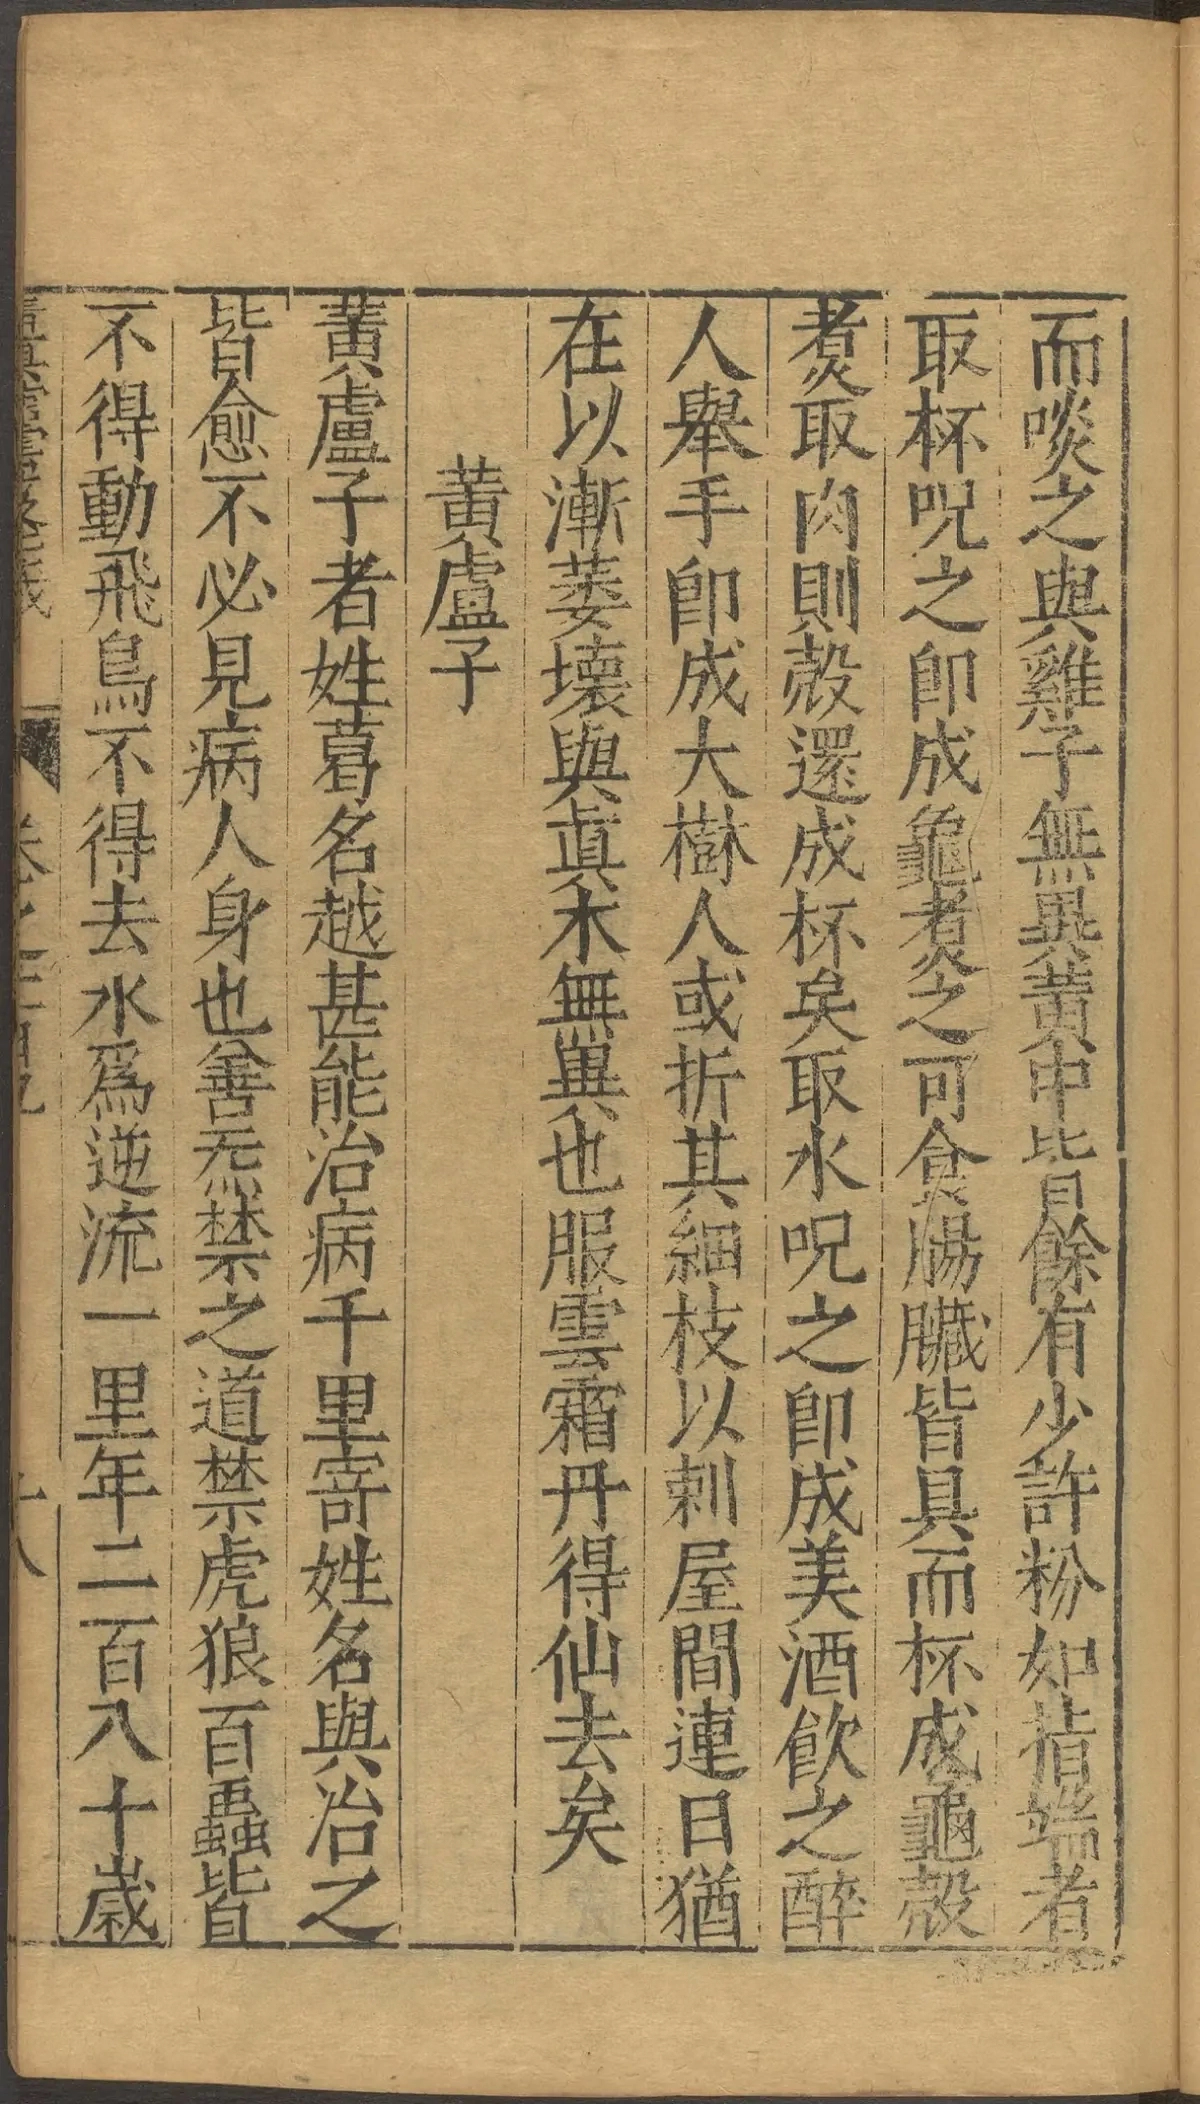 而啖之與雞子無異黃中皆餘有少許粉如指端者
取杯呪之卽成龜煑之可食腸臟皆具而杯成龜殼
煑取肉則殼還成杯矣取水呪之卽成美酒飮之醉
人舉手卽成大樹人或折其細枝以刺屋間連日猶
在以漸萎壞與眞木無異也服雲霜丹得仙去矣
黃盧子
黃盧子者姓葛名越甚能治病千里寄姓名與治之
皆愈不必見病人身也善炁禁之道禁虎狼百蟲皆
不得動飛鳥不得去水爲逆流一里年二百八十歲